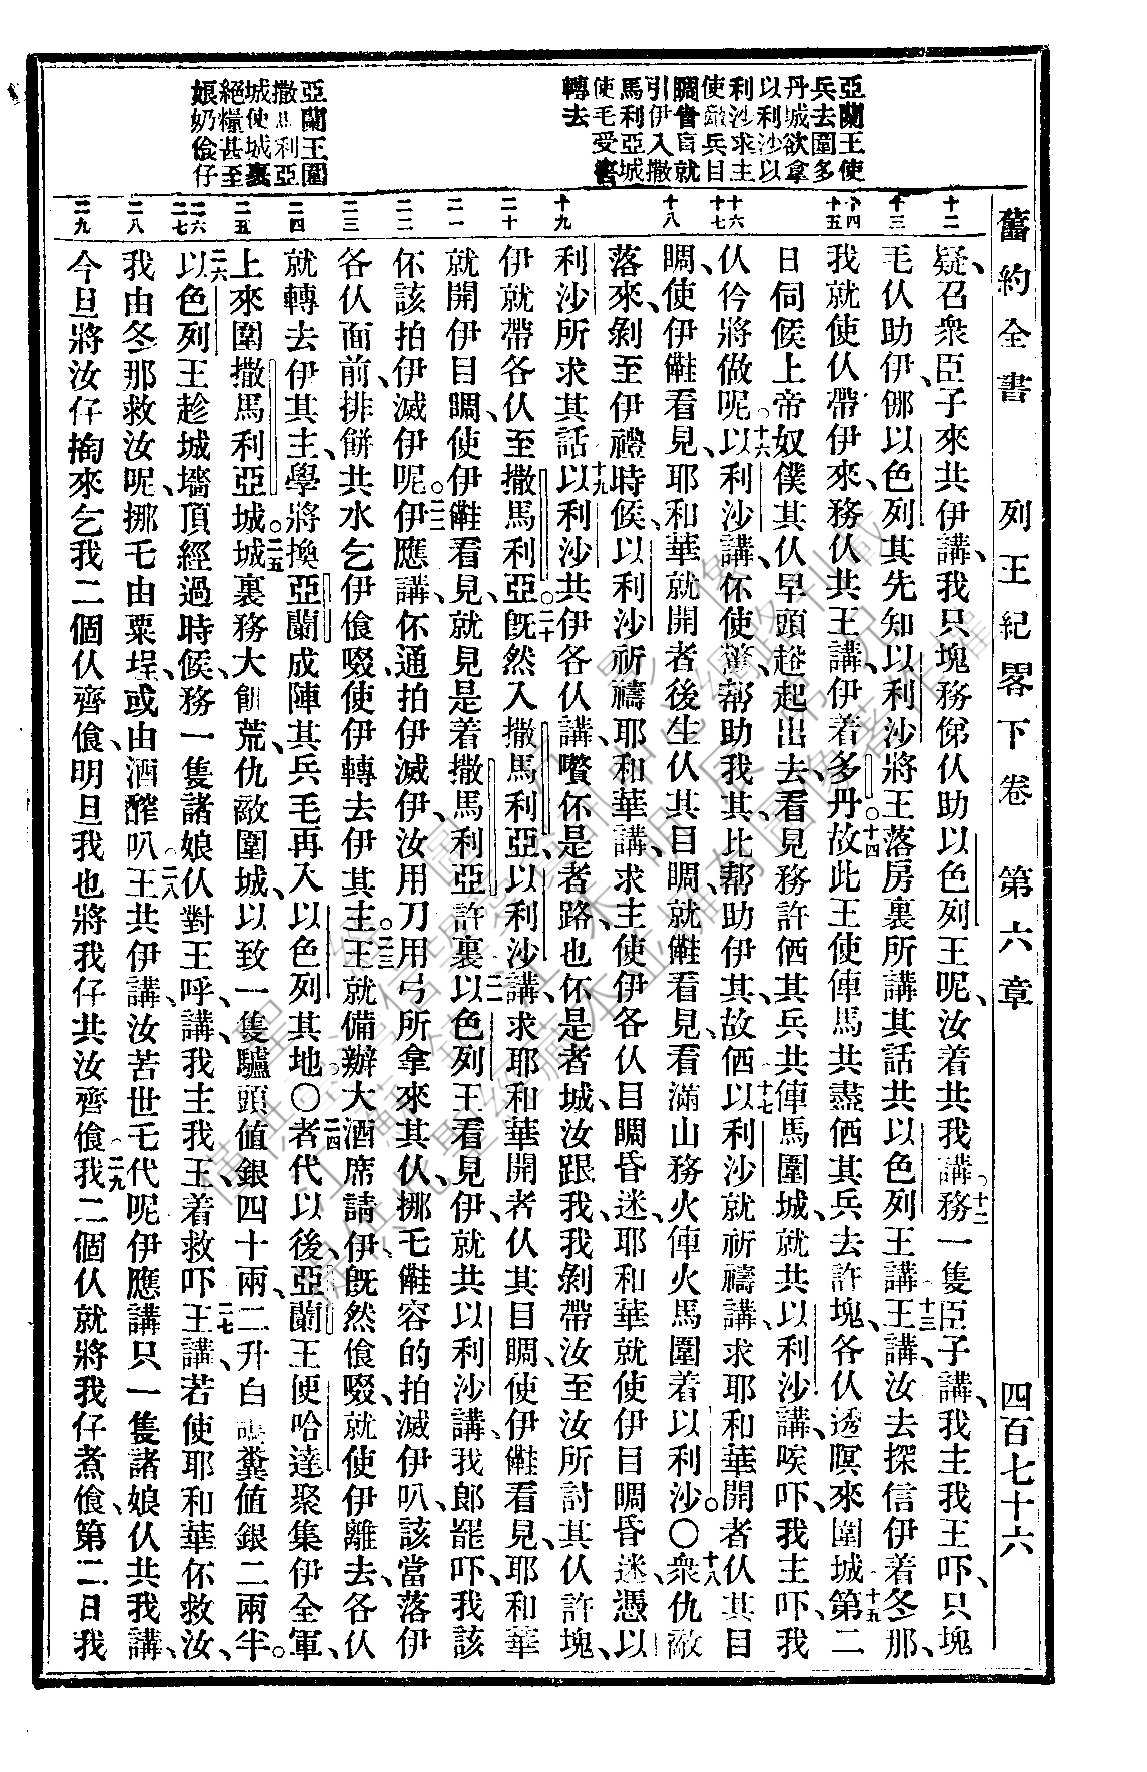 舊約全書　列王紀畧下卷　第六章　四百七十六
亞蘭王使
兵去圍多
丹城欲拿
以利沙以
利沙求主
使兵目
瞯昏盲就
引伊入撒
馬利亞城
使毛受害
轉去
亞蘭王圍
撒馬利亞
城使城裏
絕糧甚至
娘奶食仔
十二
十三
十四
十五
十六
十七
十八
十九
二十
二一
二二
二三
二四
二五
二六
二七
二八
二九
疑、召衆臣子來共伊講、我只塊務俤仈助以色列王呢、汝着共我講。十二務一隻臣子講、我主我王吓、只塊
毛仈助伊、㑚以色列其先知以利沙、將王落房裏所講其話、共以色列王講、十三王講、汝去探信伊着冬那、
我就使仈帶伊來、務仈共王講、伊着多丹。十四故此王使俥馬共盡價其兵去許塊、各仈透暝來圍城、十五第二
日伺候上帝奴僕其仈早頭趁起出去、看見務許価其兵共俥馬圍城、就共以利沙講、唉吓、我主吓、我
仈仱將做呢。十六以利沙講、伓使驚、幫助我其、比幫助伊其、故価。十七以利沙就祈禱講、求耶和華開者仈其目
瞯、使伊𠢕看見、耶和華就開者後生仈其目瞯、就𠢕看見、看滿山務火俥火馬圍着以利沙。〇十八衆仇敵
落來、剝至伊禮時候、以利沙祈禱耶和華講、求主使伊各仈目瞯昏迷、耶和華就使伊目瞯昏迷、憑以
利沙所求其話。十九以利沙共伊各仈講、嚽伓是者路、也伓是者城、汝跟我、我剝帶汝至汝所討其仈許塊、
伊就帶各仈至撒馬利亞。二十旣然入撒馬利亞、以利沙講、求耶和華開者仈其目瞯、使伊𠢕看見、耶和華
就開伊目瞯、使伊𠢕看見、就見是着撒馬利亞許裏。二一以色列王看見伊、就共以利沙講、我郎罷吓、我該
伓該拍伊滅伊呢。二二伊應講、伓通拍伊滅伊、汝用刀用弓所拿來其仈、挪毛𠢕容的拍滅伊叭、該當落伊
各仈面前、排餅共水乞伊食啜、使伊轉去伊其主。二三王就備辦大酒席請伊、旣然食啜、就使伊離去、各仈
就轉去伊其主、學將換亞蘭成陣其兵毛再入以色列其地。〇二四者代以後、亞蘭王便哈達聚集伊全軍、
上來圍撒馬利亞城。二五城裏務大飢荒、仇敵圍城、以致一隻驢頭值銀四十兩、二升白鴿糞值銀二兩半。
二六以色列王趁城墻頂經過時候、務一隻諸娘仈對王呼、講、我主我王、着救吓。二七王講、若使耶和華伓救汝、
我由冬那救汝呢、挪毛由粟埕、或由酒醡叭。二八王共伊講、汝苦世乇代呢、伊應講、只一隻諸娘仈共我講、
今旦將汝仔掏來乞我二個仈齊食、明旦我也將我仔共汝齊食。二九我二個仈就將我仔煮食、第二日我